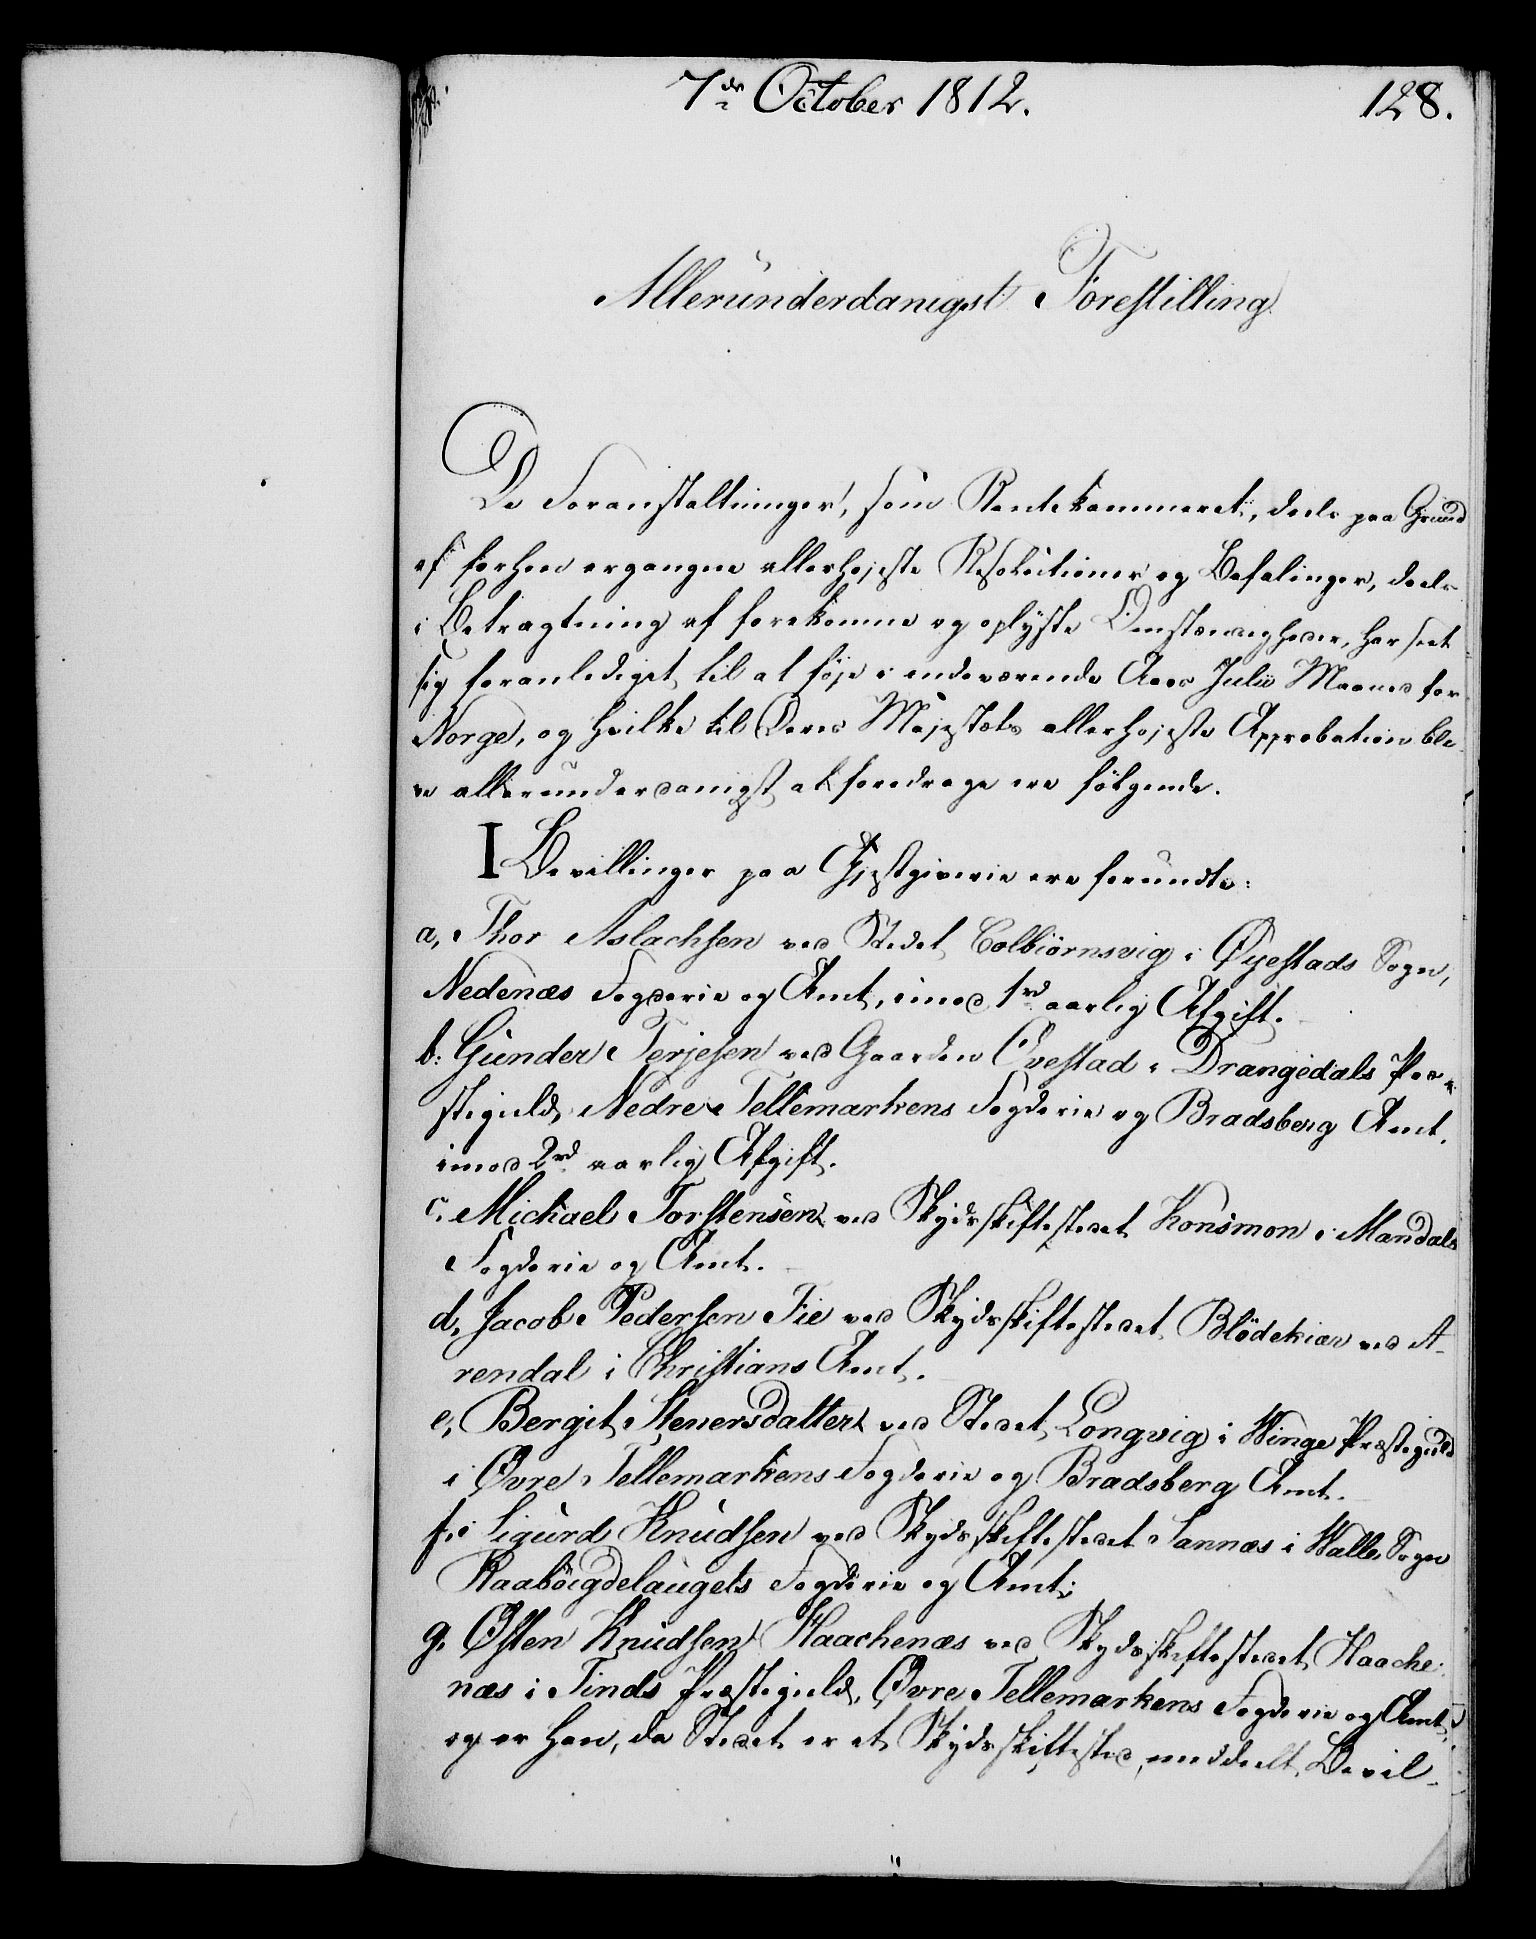 7de October 1812.
128.
Alleründerdanigst Forestilling
De Foranstaltninger, som Rentekammeret, deels paa Grund
af forhen ergangne allerhøjeste Resolutioner og Befalinger, deels
i Betragtning af forekomne og oplyste Omstændigheder, har seet
sig foranlediget til at føje i indeværende Aars Julii Maaned for
Norge, og hvilke til Deres Majestæts allerhøjeste Approbation ble-
ve allerunderdanigst at foredrage ere følgende.
I Bevillinger paa Gjestgiverie ere forundte:
a, Thor Aslachsen ved Stedet Colbiørnsvig i Øyestads Sogn,
Nedenæs Fogderie og Amt, imod 1rd aarlig Afgift.
b: Gunder Terjesen ved Gaarden Øvestad i Drangedals Præ-
stegield, Nedre Tellemarkens Fogderie og Bradsberg Amt,
imod 2rd aarlig Afgift.
c. Michael Torstensen ved Skydsskiftestedet Konsmon i Mandals
Fogderie og Amt.
d, Jacob Pedersen Fie ved Skydsskiftestedet Blödekiær ved A-
rendal i Christians Amt.
e, Bergit Stenersdatter ved Stedet Longvig i Winge Præstegield
i Øvre Tellemarkens Fogderie og Bradsberg Amt.
f. Sigurd Knudsen ved Skydsskiftestedet Sannæs i Walle Sogn
Raabøigdelaugets Fogderie og Amt;
g. Østen Knudsen Haachenæs ved Skydsskiftestedet Haache-
næs i Tinds Præstegield, Øvre Tellemarkens Fogderie og Amt,
og er han, da Stedet er et Skydsskiftested, meddeelt Bevil-